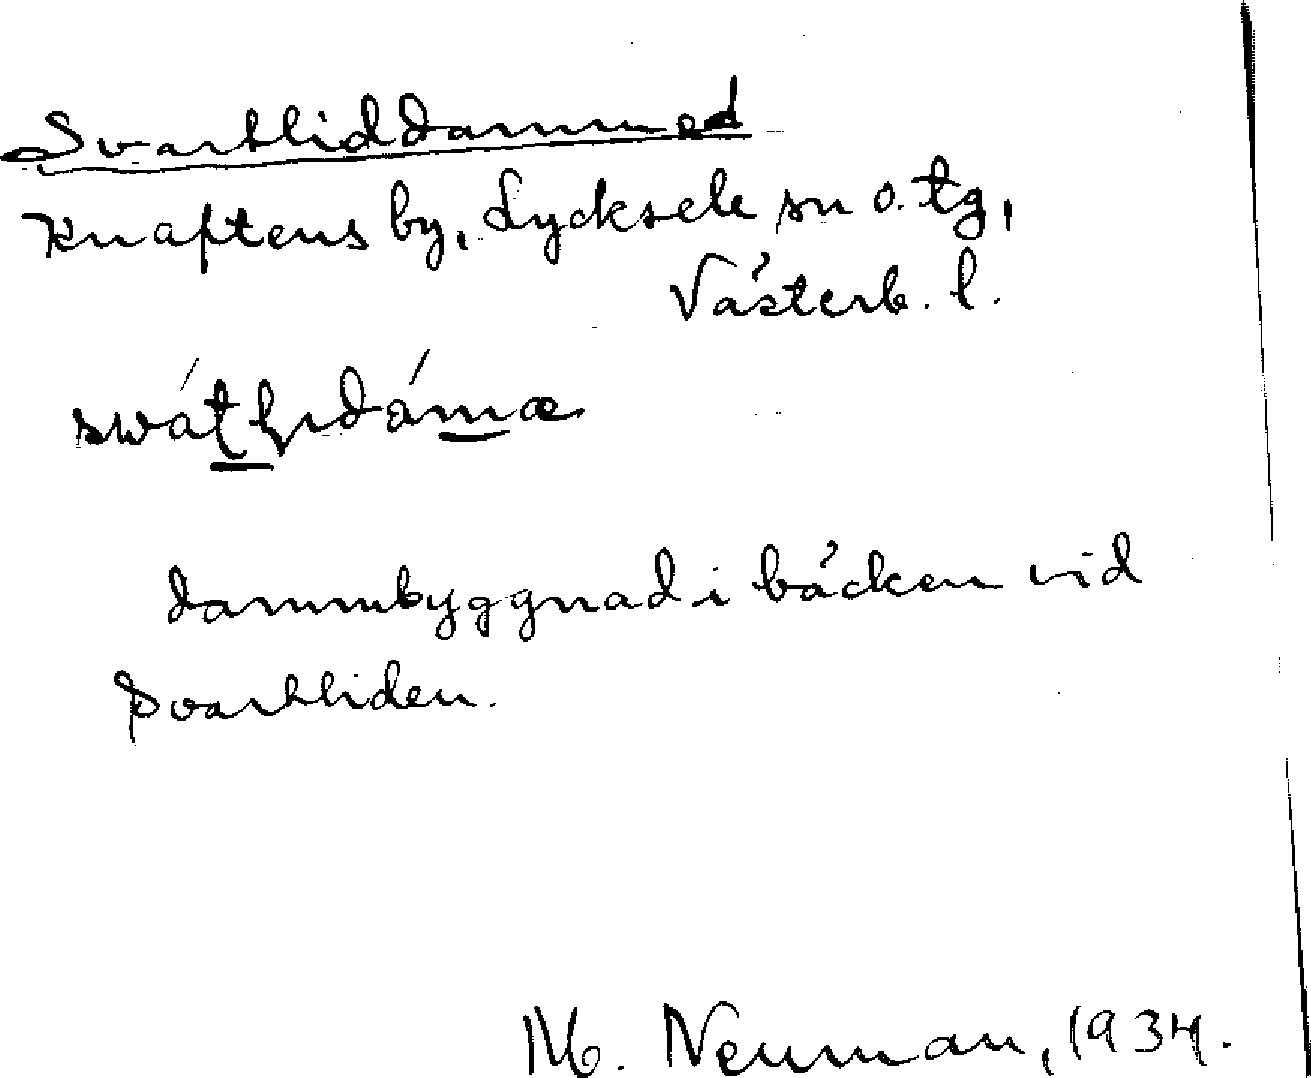 Svartliddammed
Knaftens by, Lycksele sn o. tg,
Västerb. l.
dammbyggnad i bäcken vid
Svartliden.
M. Neuman, 1934.